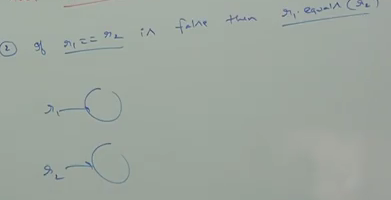 ② If r₁ == r₂ is false then r₁.equals(r₂)
r₁
r₂